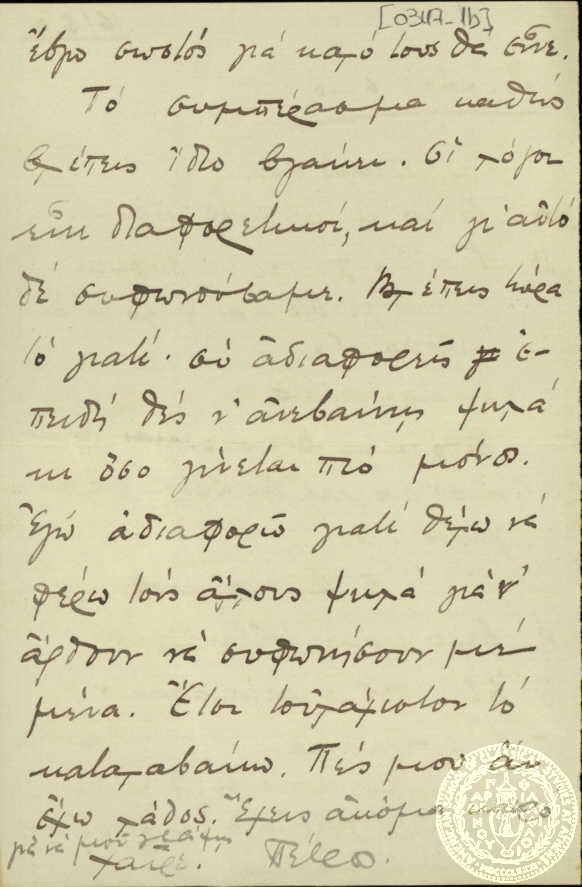 [0347-1b]
ἔβγω σωστός γιά καλό τους θὰ εἶνε.
Τό συμπέρασμα καθώς
βλέπεις ἴδιο βγαίνει. Οἱ λόγοι
εἶνε διαφορετικοί, καί γι' αὐτό
δέ συφωνούσαμε. Βλέπεις τώρα
τό γιατί. σύ ἀδιαφορεῖς ἐ-
πειδή θές ν' ἀνεβαίνῃς ψηλά
κι ὅσο γίνεται πιό μόνος.
Ἐγώ ἀδιαφορῶ γιατί θέλω νά
φέρω τούς ἄλλους ψηλά γιά ν'
ἄρθουν νά συφωνήσουν μέ
μένα. Ἔτσι τουλάχιστον τό
καταλαβαίνω. Πές μου ἄν
ἔχω λάθος. Ἔχεις ἀκόμα καιρό
γιά νά μοῦ γράψῃς
χαῖρε. Πέτρο.